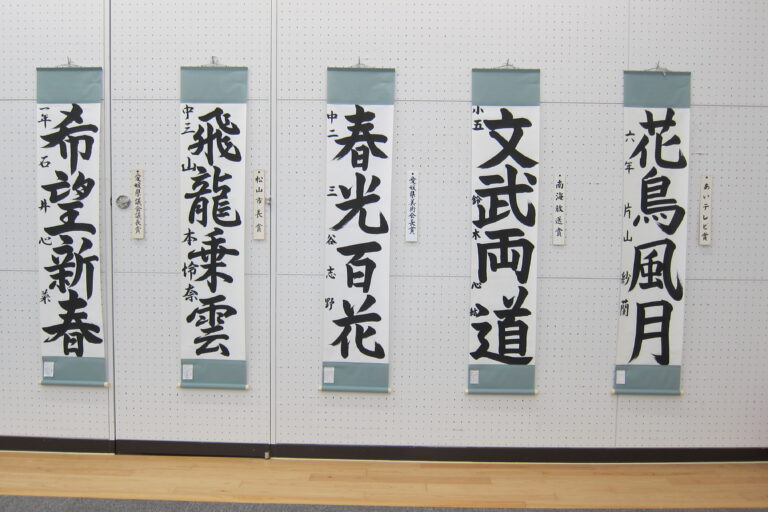 花鳥風月
六年 片山紗蘭
あいテレビ賞
文武両道
小五 鈴木心
南海放送賞
春光百花
中二 三谷志野
愛媛県美術会長賞
飛龍乗雲
中三 山本怜奈
松山市長賞
希望新春
一年 石井心菜
愛媛県議会議長賞